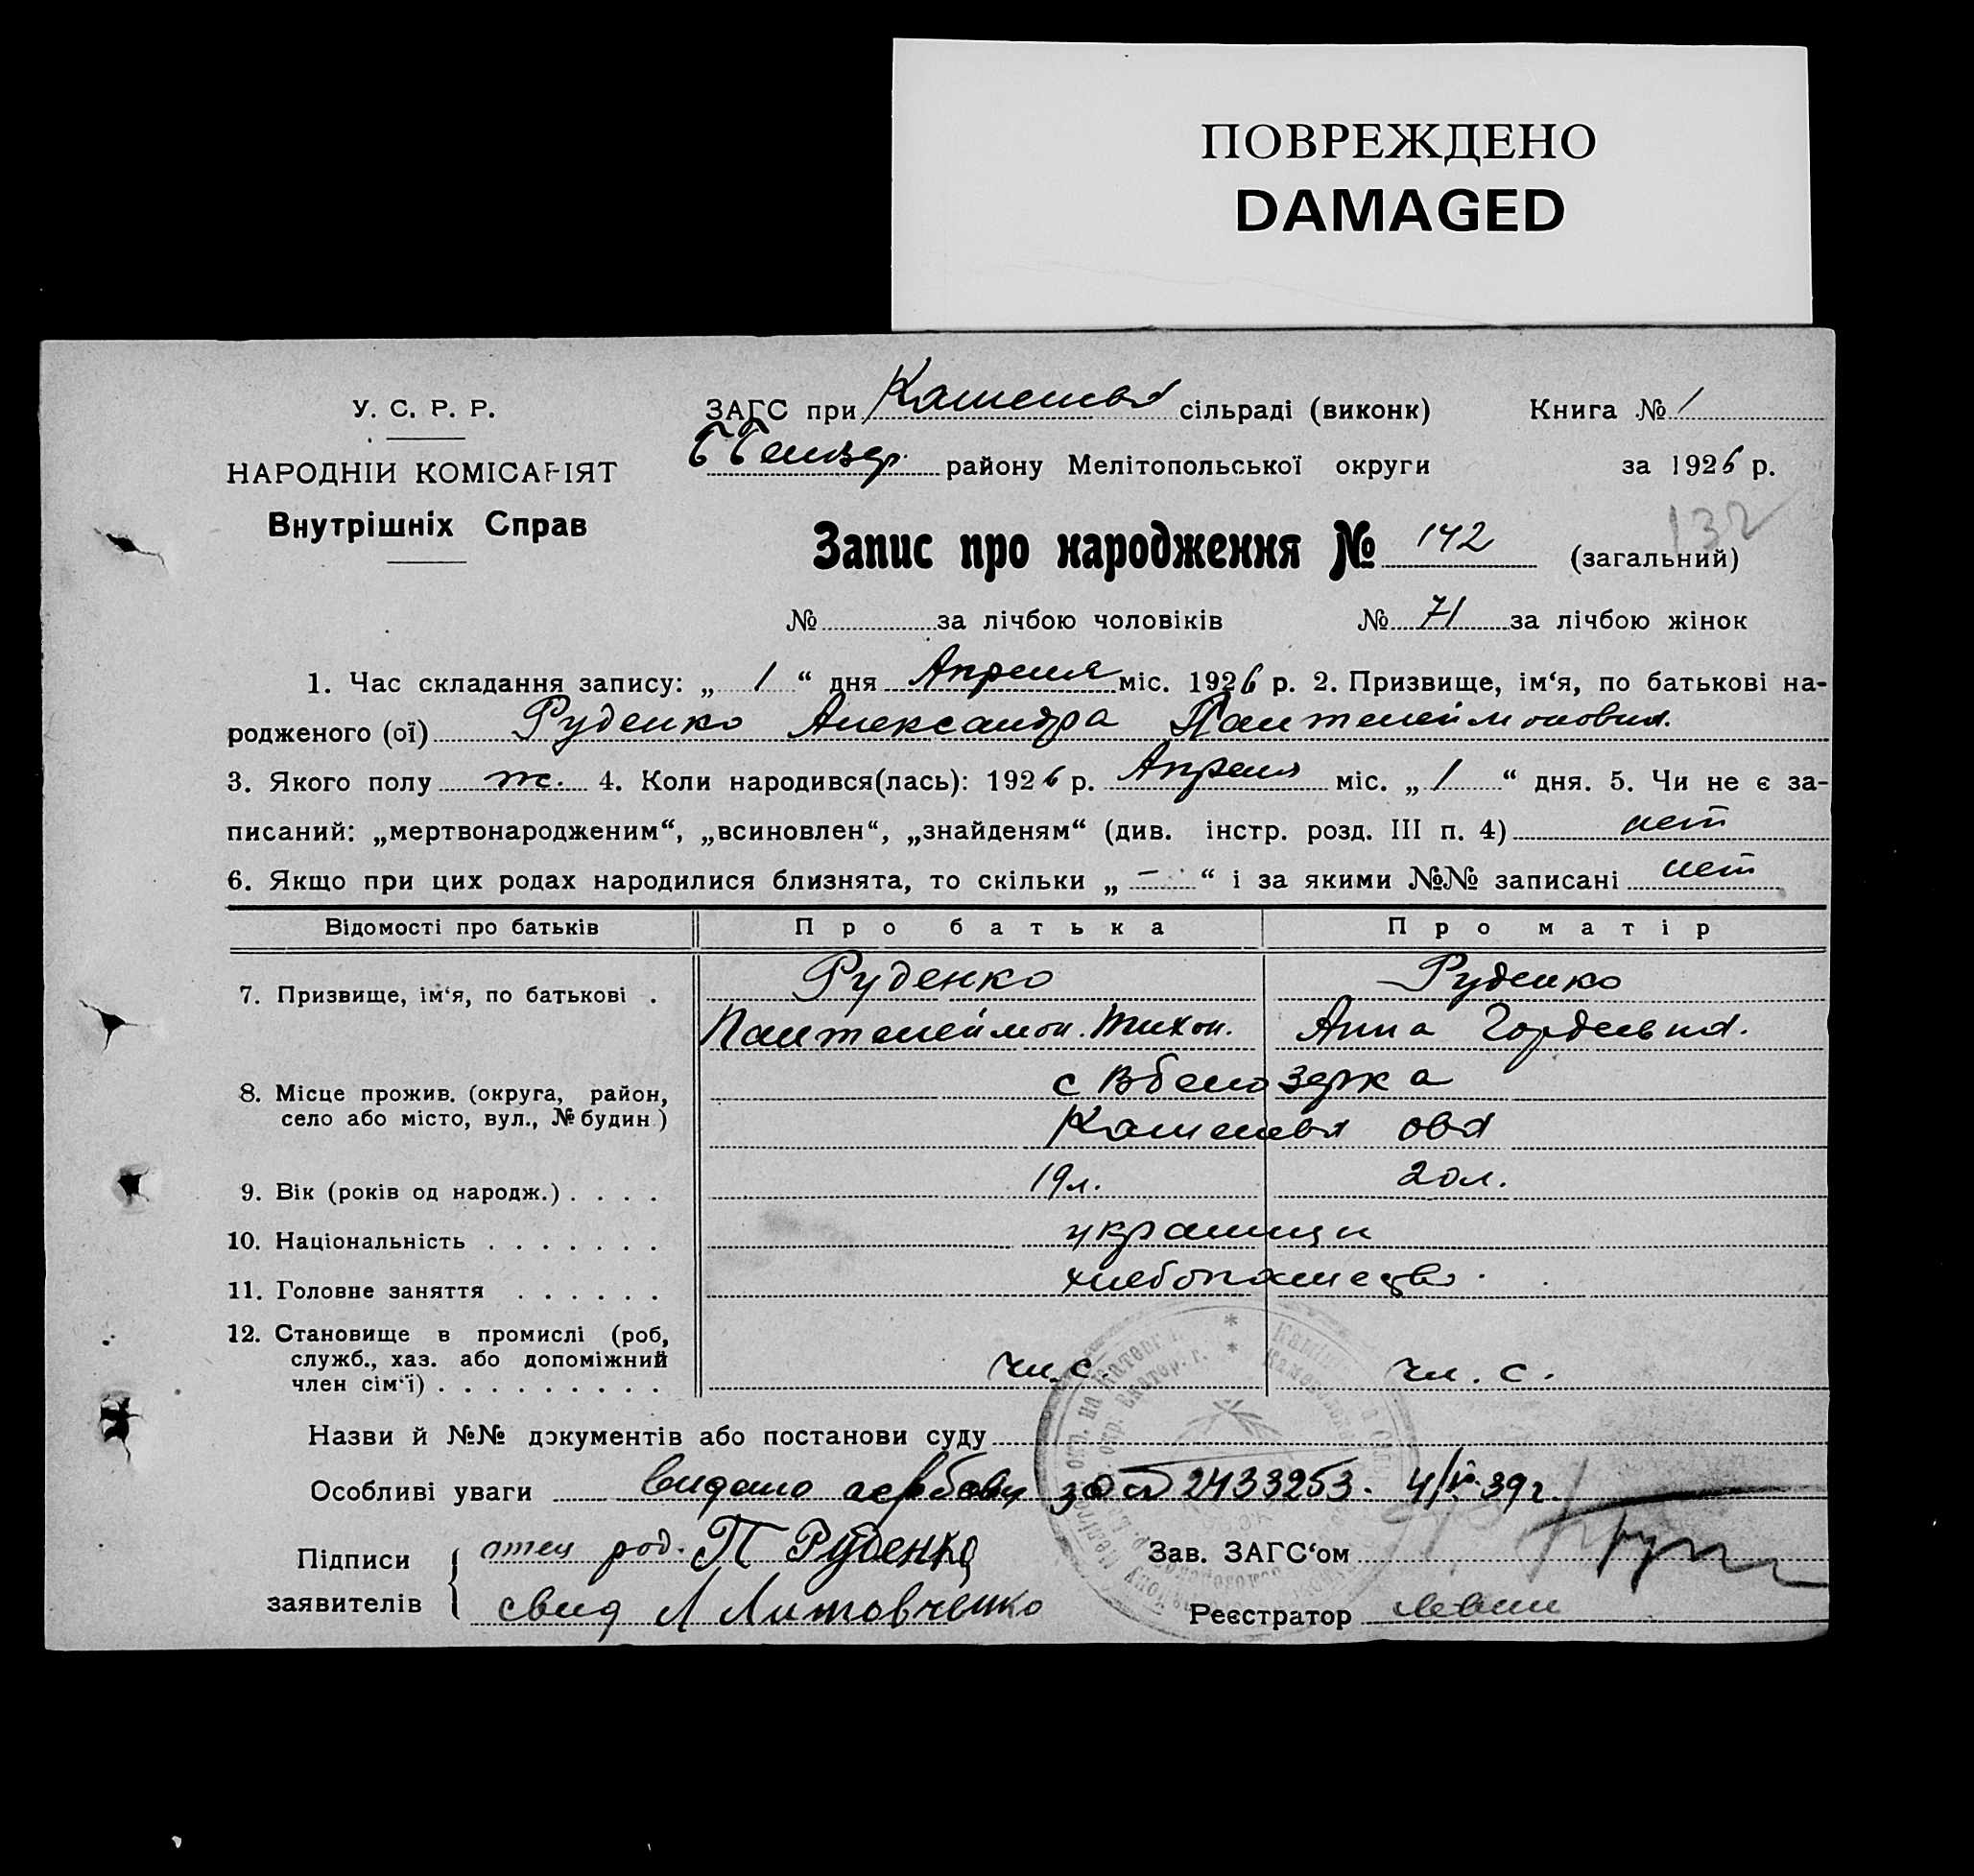 ПОВРЕЖДЕНО
DAMAGED
У. С. Р. Р.
НАРОДНІЙ КОМІСАРІЯТ
Внутрішніх Справ
ЗАГС при сільраді (виконк) Книга № 1
району Мелітопольської округи за 1926 р.
132
Запис про народження № 142 (загальний)
№ за лічбою чоловіків № 71 за лічбою жінок
1. Час складання запису: „ 1 “ дня Апреля міс. 1926 р. 2. Призвище, ім‘я, по батькові на-
родженого (ої) Руденко Александра Пантелеймоновна.
3. Якого полу ж. 4. Коли народився(лась): 1926 р. Апреля міс. „ 1 “ дня. 5. Чи не є за-
писаний: „мертвонародженим“, „всиновлен“, „знайденям“ (див. інстр. розд. III п. 4) нет
6. Якщо при цих родах народилися близнята, то скільки „ — “ і за якими №№ записані нет
Відомості про батьків Про батька Про матір
7. Призвище, ім‘я, по батькові . Руденко Руденко
Пантелеймон. Тихон. Анна Гордеевна.
8. Місце прожив. (округа, район, с Вбелозерка
село або місто, вул., № будин )
9. Вік (років од народж.) . . . . 19л. 20л.
10. Національність . . . . . . . украинци
11. Головне заняття . . . . . . хлебопашество.
12. Становище в промислі (роб,
служб., хаз. або допоміжний
член сім‘ї) . . . . . . . . . чл. с. чл. с.
Назви й №№ документів або постанови суду
Особливі уваги видано 2433253. 4/V-39г.
Підписи отец род. П Руденко Зав. ЗАГС‘ом
заявителів свид Л Литовченко Реєстратор